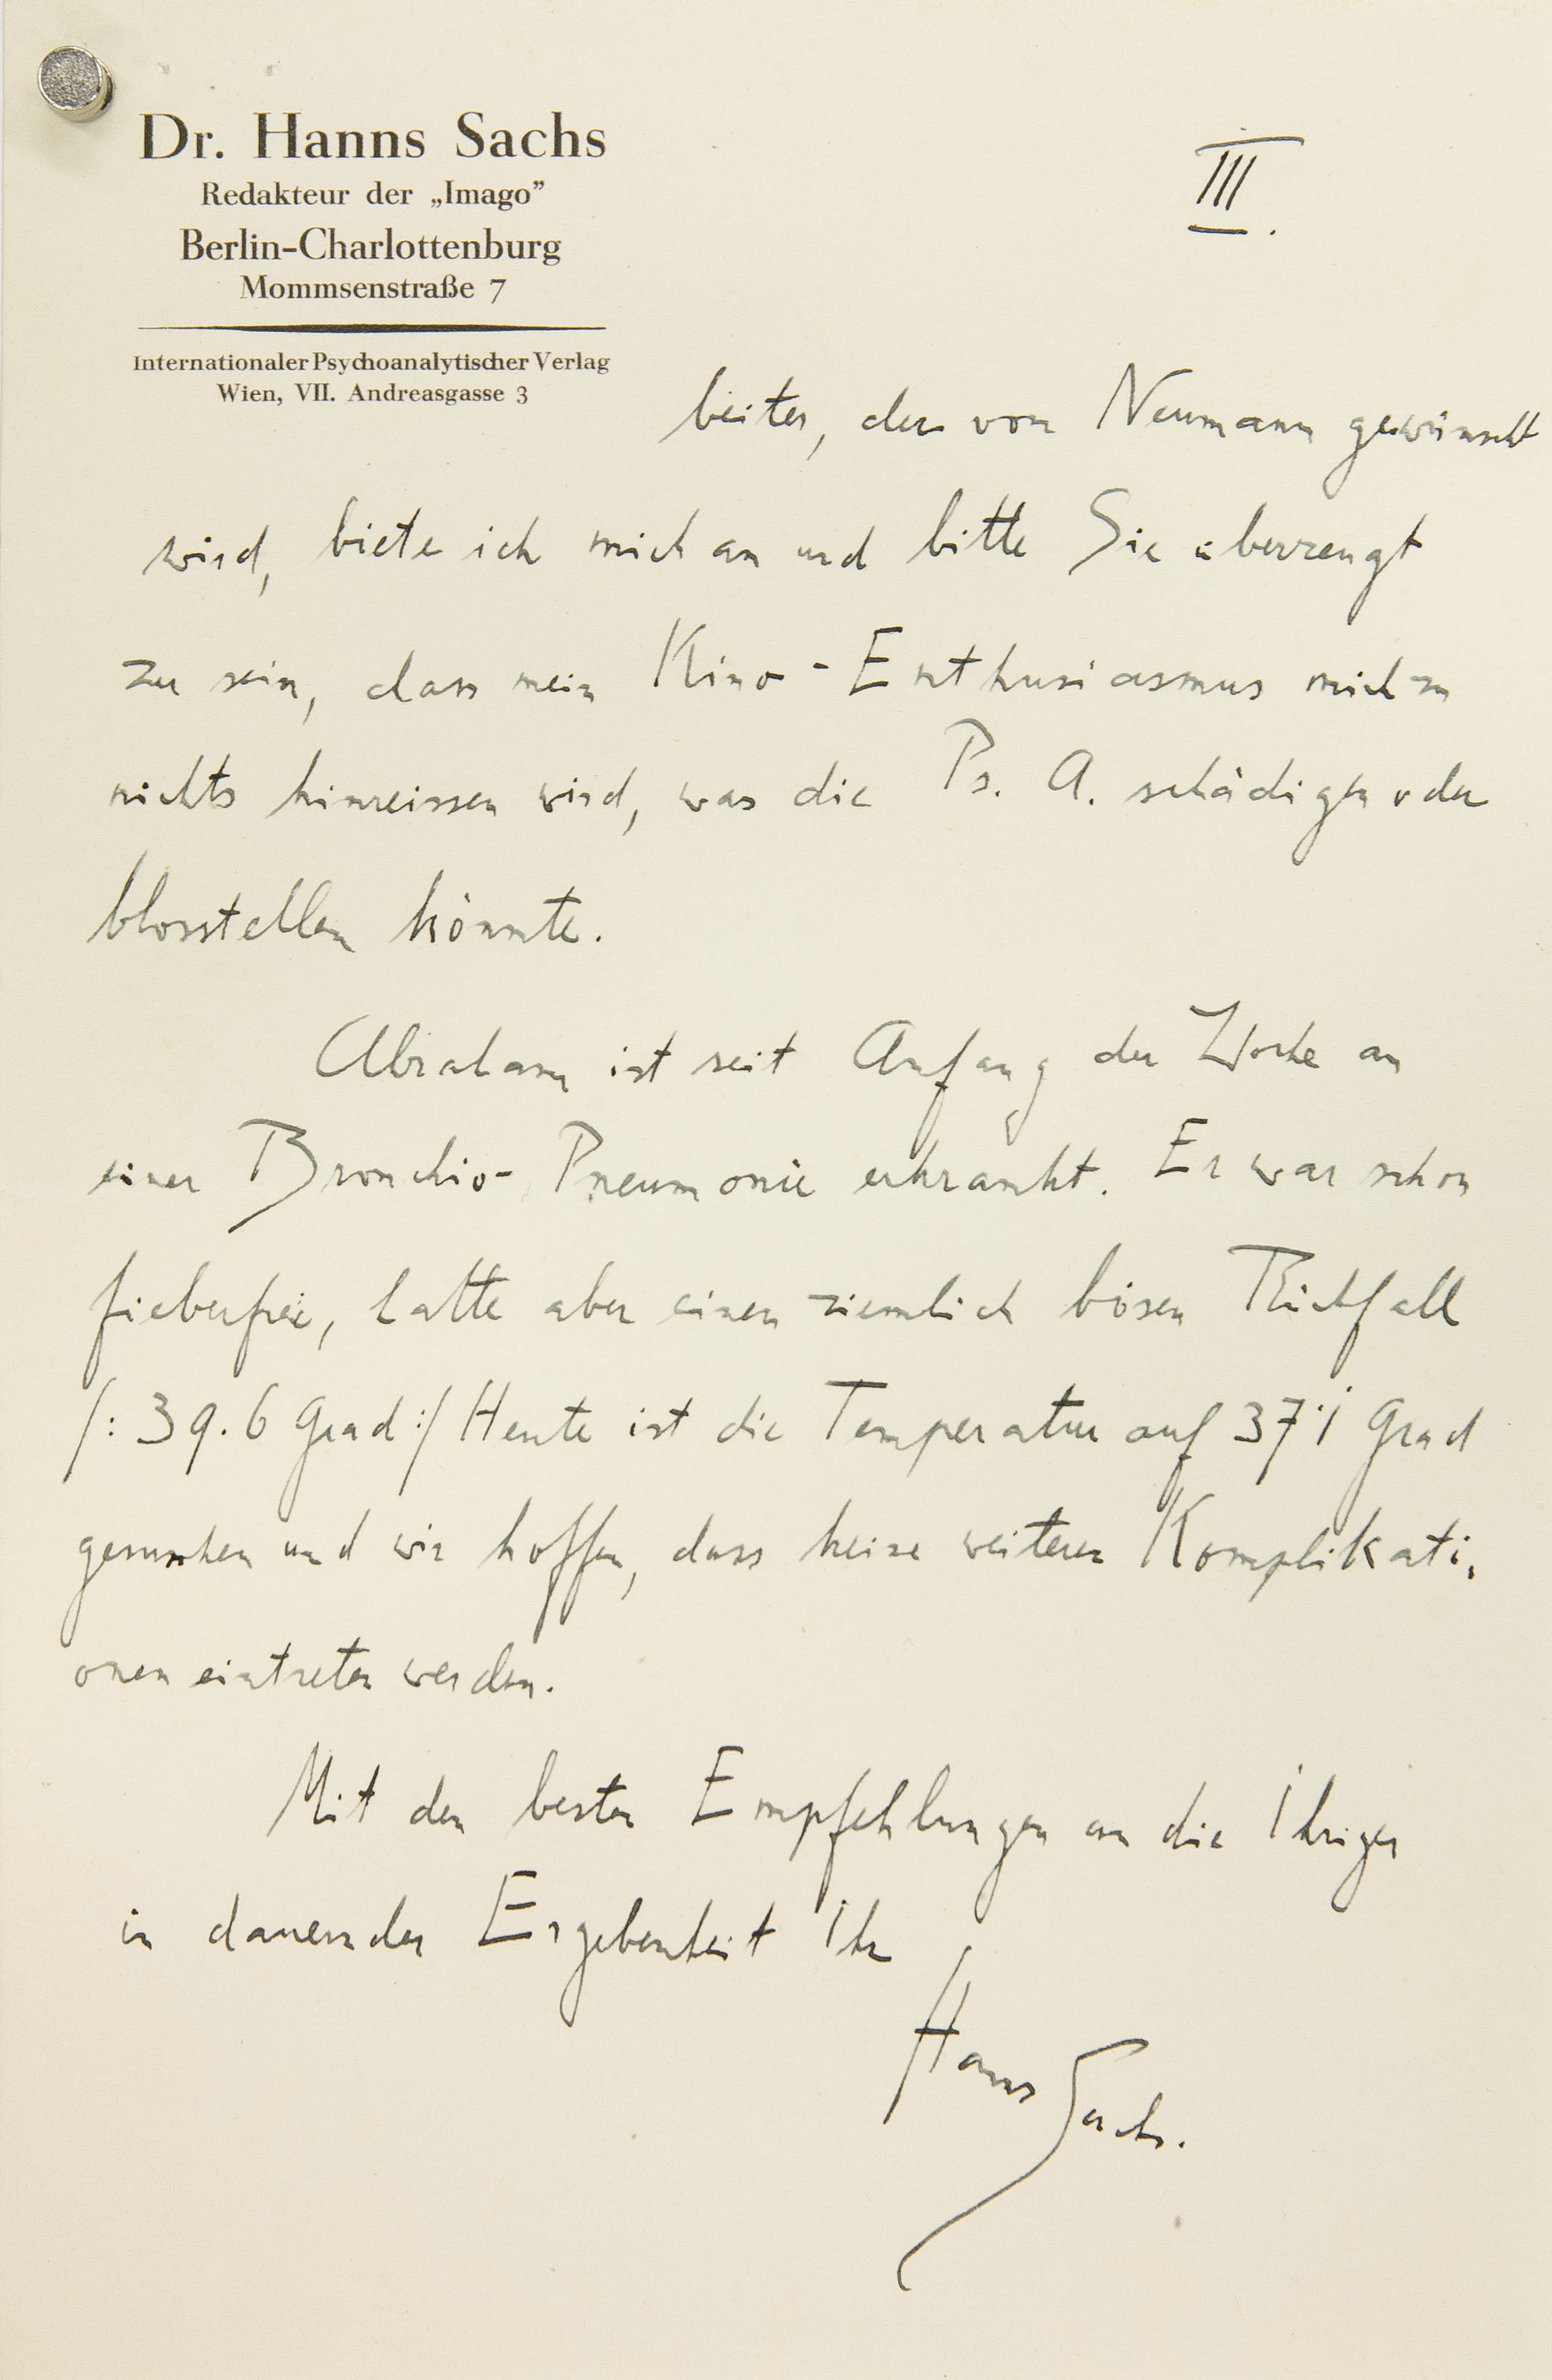 Dr. Hanns Sachs
Redakteur der „Imago”
Berlin-Charlottenburg
Mommsenstraße 7
Internationaler Psychoanalytischer Verlag
Wien, VII. Andreasgasse 3
III.
beiter, der von Neumann gewünscht
wird, biete ich mich an und bitte Sie überzeugt
zu sein, dass mein Kino-Enthusiasmus mich zu
nichts hinreissen wird, was die Ps. A. schädigen oder
blosstellen könnte.
Abraham ist seit Anfang der Woche an
einer Bronchio-Pneumonie erkrankt. Er war schon
fieberfrei, hatte aber einen ziemlich bösen Rückfall
/: 39.6 Grad :/ Heute ist die Temperatur auf 37·1 Grad
gesunken und wir hoffen, dass keine weiteren Komplikati-
onen eintreten werden.
Mit den besten Empfehlungen an die Ihrigen
in dauernder Ergebenheit Ihr
Hanns Sachs.